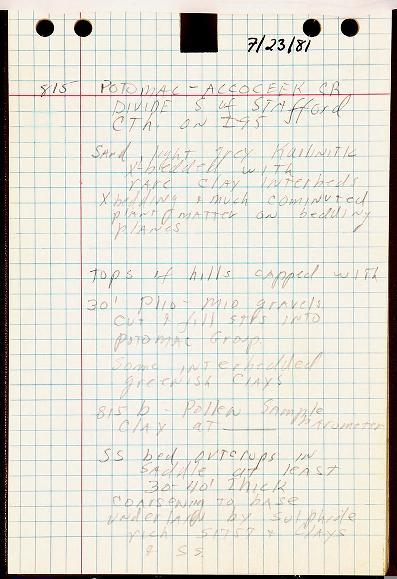 7/23/81
815 POTOMAC - ACCOCEEK CR
DIVIDE S of STAfford
CTH. ON I95
SAND light grey Kaolinitic
X-bedded with
rare CLAY INTERbeds
Xbedding & much cominuted
plant matter on bedding
planes
Tops of hills capped with
30' Plio-Mio gravels
cut & fill STRS INTO
POTOMAC Group.
Some INTERbedded
greenish Clays
815 b - Pollen Sample
Clay at ______ barometer
SS bed outcrops in
saddle at least
30-40' Thick
coarsening to base
underlain by Sulphide
rich SITST & Clays
& SS